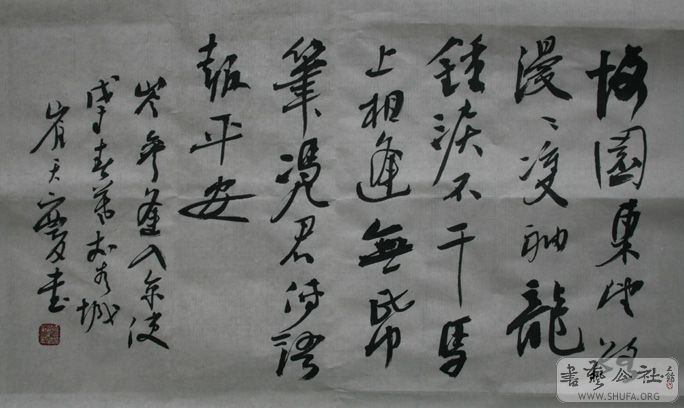 故園東望路
漫〻雙袖龍
鍾淚不干馬
上相逢無帋
筆憑君傳語
報平安
岑參逢入京使
戊子春 城
天 书
書藝公社
WWW.SHUFA.ORG